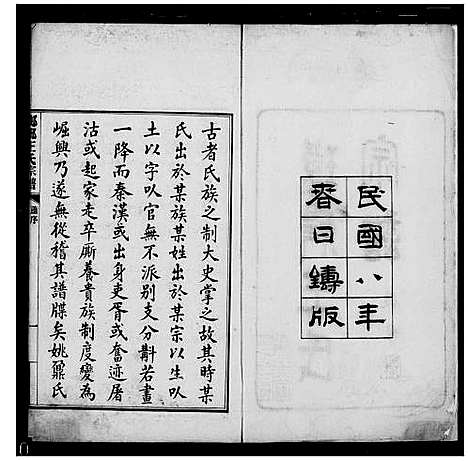 民國八年
春日鐫版
古者氏族之制大史掌之故其時某
氏出於某族某姓出於某宗以生以
土以字以官無不派別支分斠若畫
一降而秦漢或出身吏胥或奮迹屠
沽或起家走卒廝養貴族制度變為
崛興乃遂無從稽其譜牒矣姚鼐氏
王氏宗譜